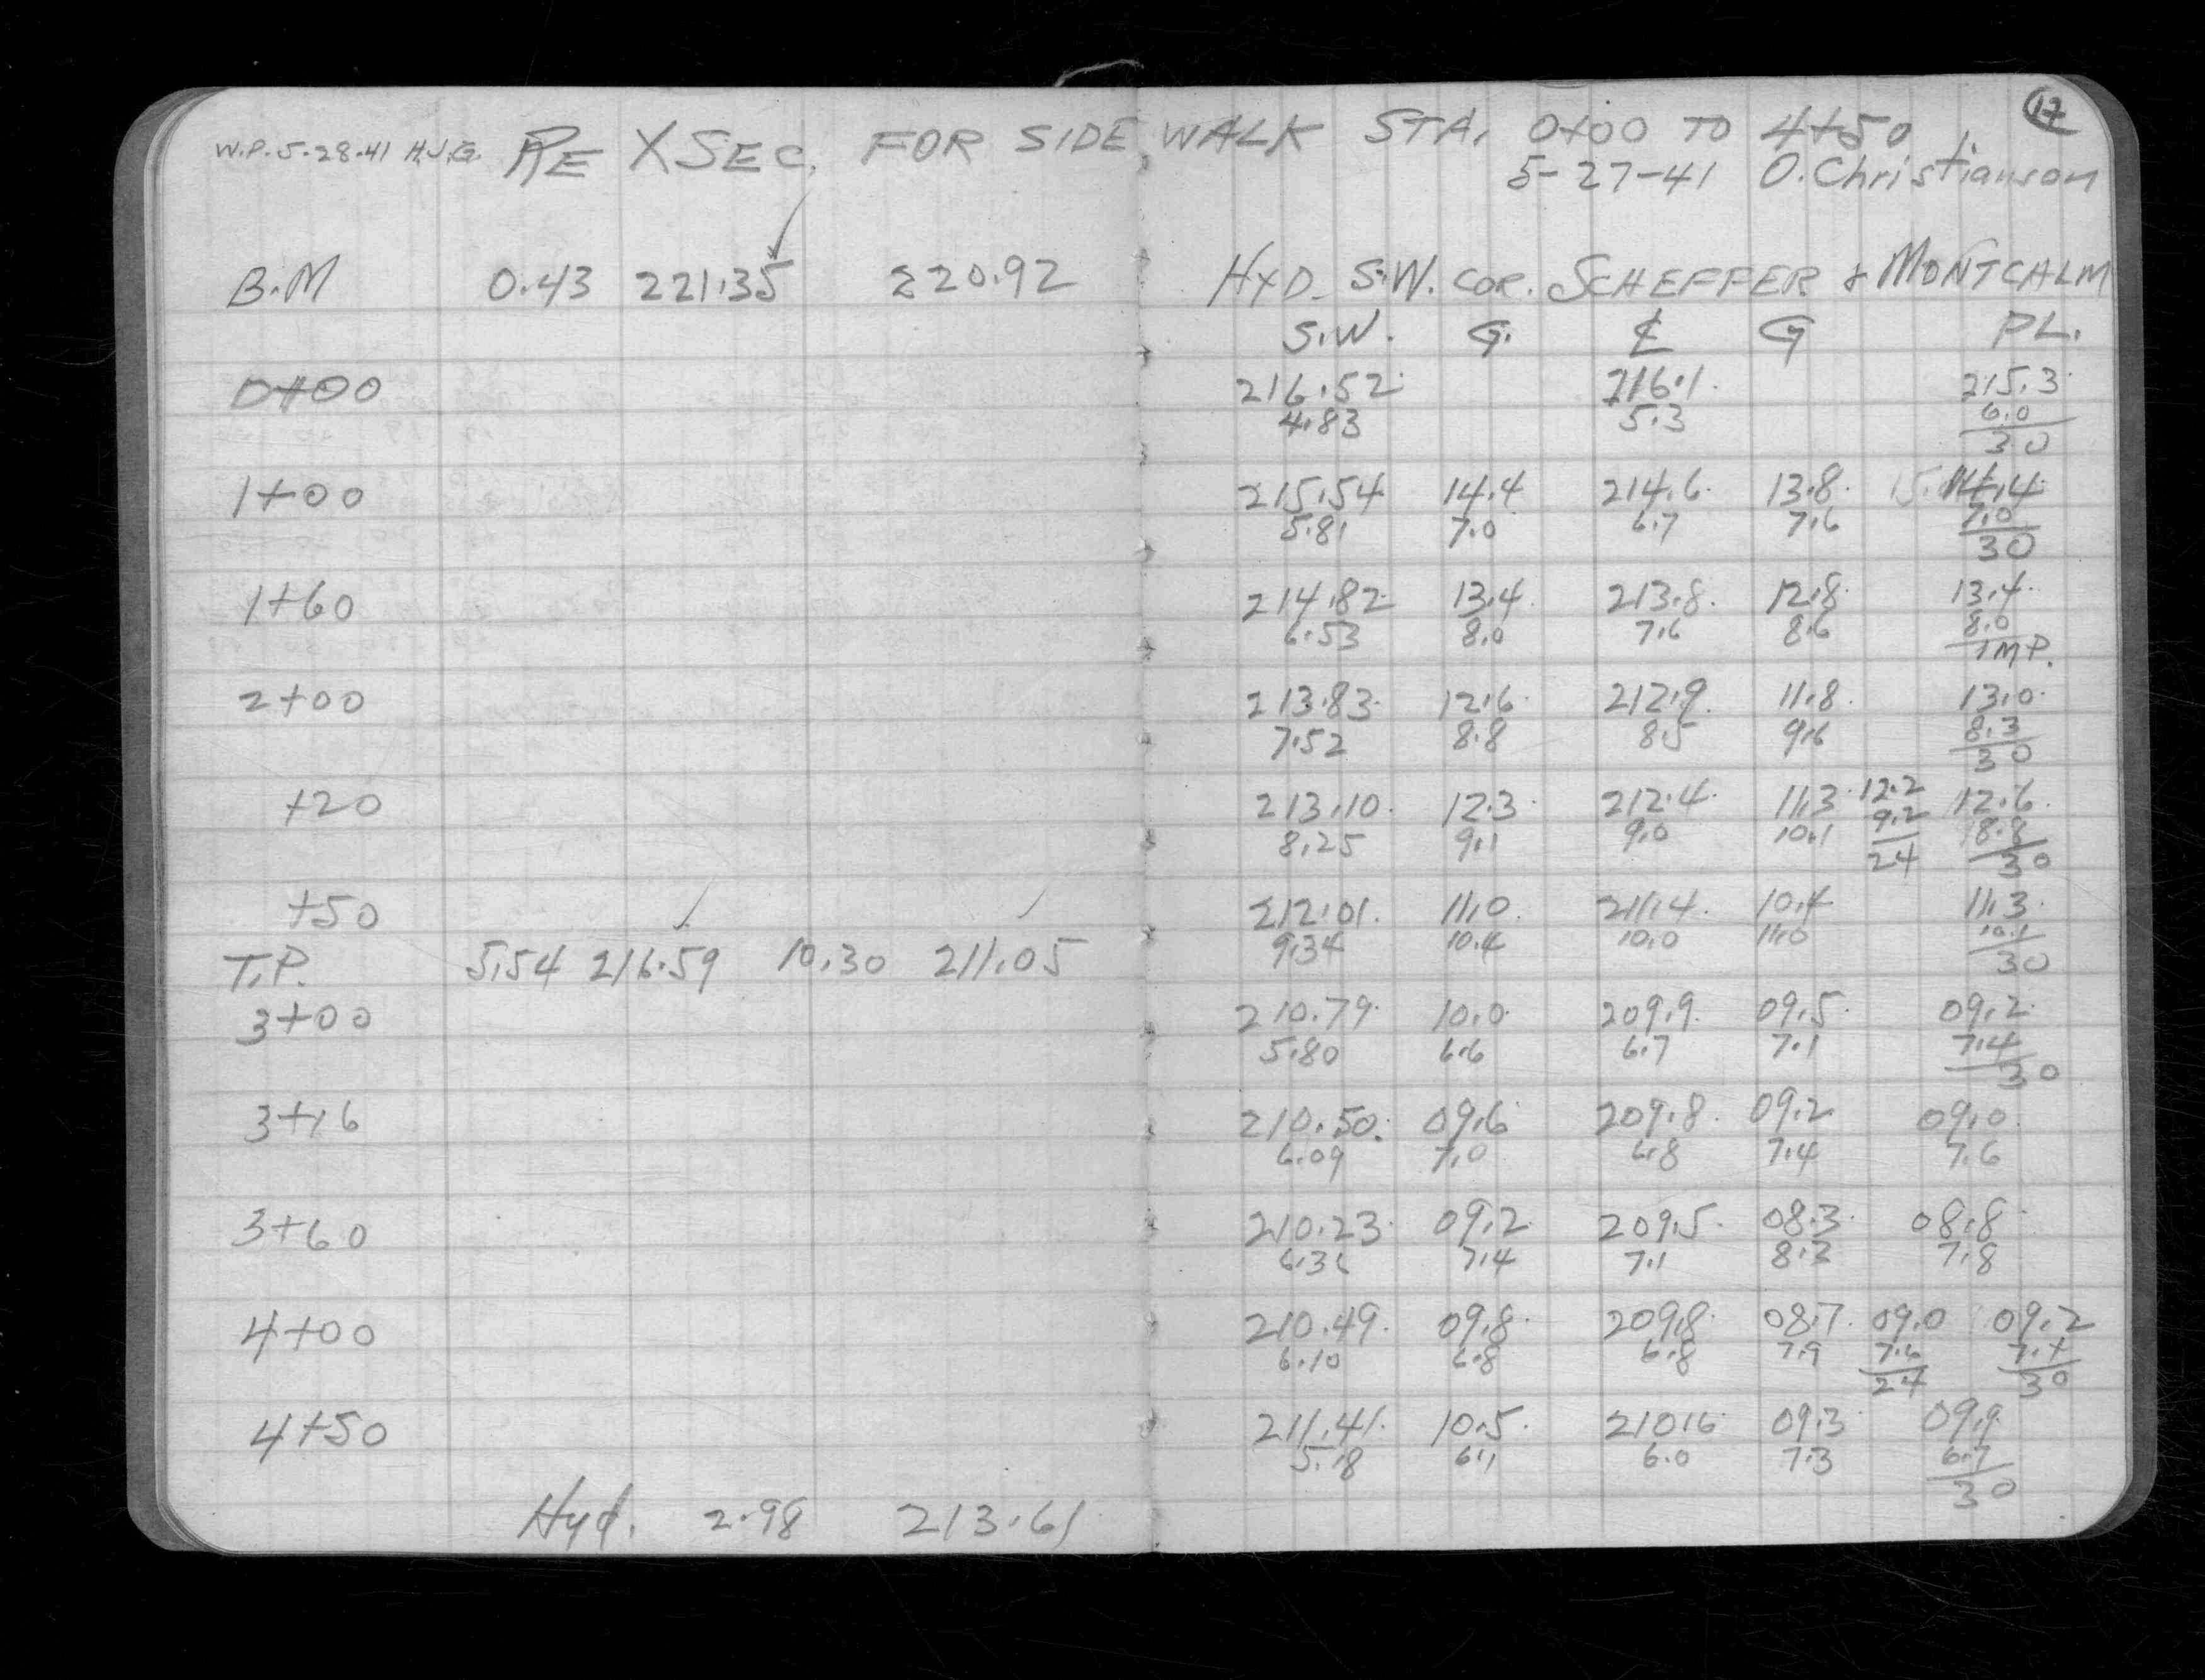 17
W.P. 5-28-41 H.J.G. RE XSEC. FOR SIDE WALK STA. 0+00 TO 4+50
5-27-41 O. Christianson
B.M 0.43 221.35 220.92 HYD. S.W. COR. SCHEFFER & MONTCALM
S.W. G. ℄ G PL.
0+00 216.52 216.1 215.3
4.83 5.3 6.0
30
1+00 215.54 14.4 214.6 13.8 14.4
5.81 7.0 6.7 7.6 7.0
30
1+60 214.82 13.4 213.8 12.8 13.4
6.53 8.0 7.6 8.6 8.0
IMP.
2+00 213.83 12.6 212.9 11.8 13.0
7.52 8.8 8.5 9.6 8.3
30
+20 213.10 12.3 212.4 11.3 12.2 12.6
8.25 9.1 9.0 10.1 9.2 8.8
24 30
+50 212.01 11.0 211.4 10.4 11.3
9.34 10.4 10.0 11.0 10.1
T.P. 5.54 216.59 10.30 211.05 30
3+00 210.79 10.0 209.9 09.5 09.2
5.80 6.6 6.7 7.1 7.4
30
3+16 210.50 09.6 209.8 09.2 09.0
6.09 7.0 6.8 7.4 7.6
3+60 210.23 09.2 209.5 08.3 08.8
6.36 7.4 7.1 8.3 7.8
4+00 210.49 09.8 209.8 08.7 09.0 09.2
6.10 6.8 6.8 7.9 7.6 7.4
24 30
4+50 211.41 10.5 210.6 09.3 09.9
5.18 6.1 6.0 7.3 6.7
30
Hyd. 2.98 213.61